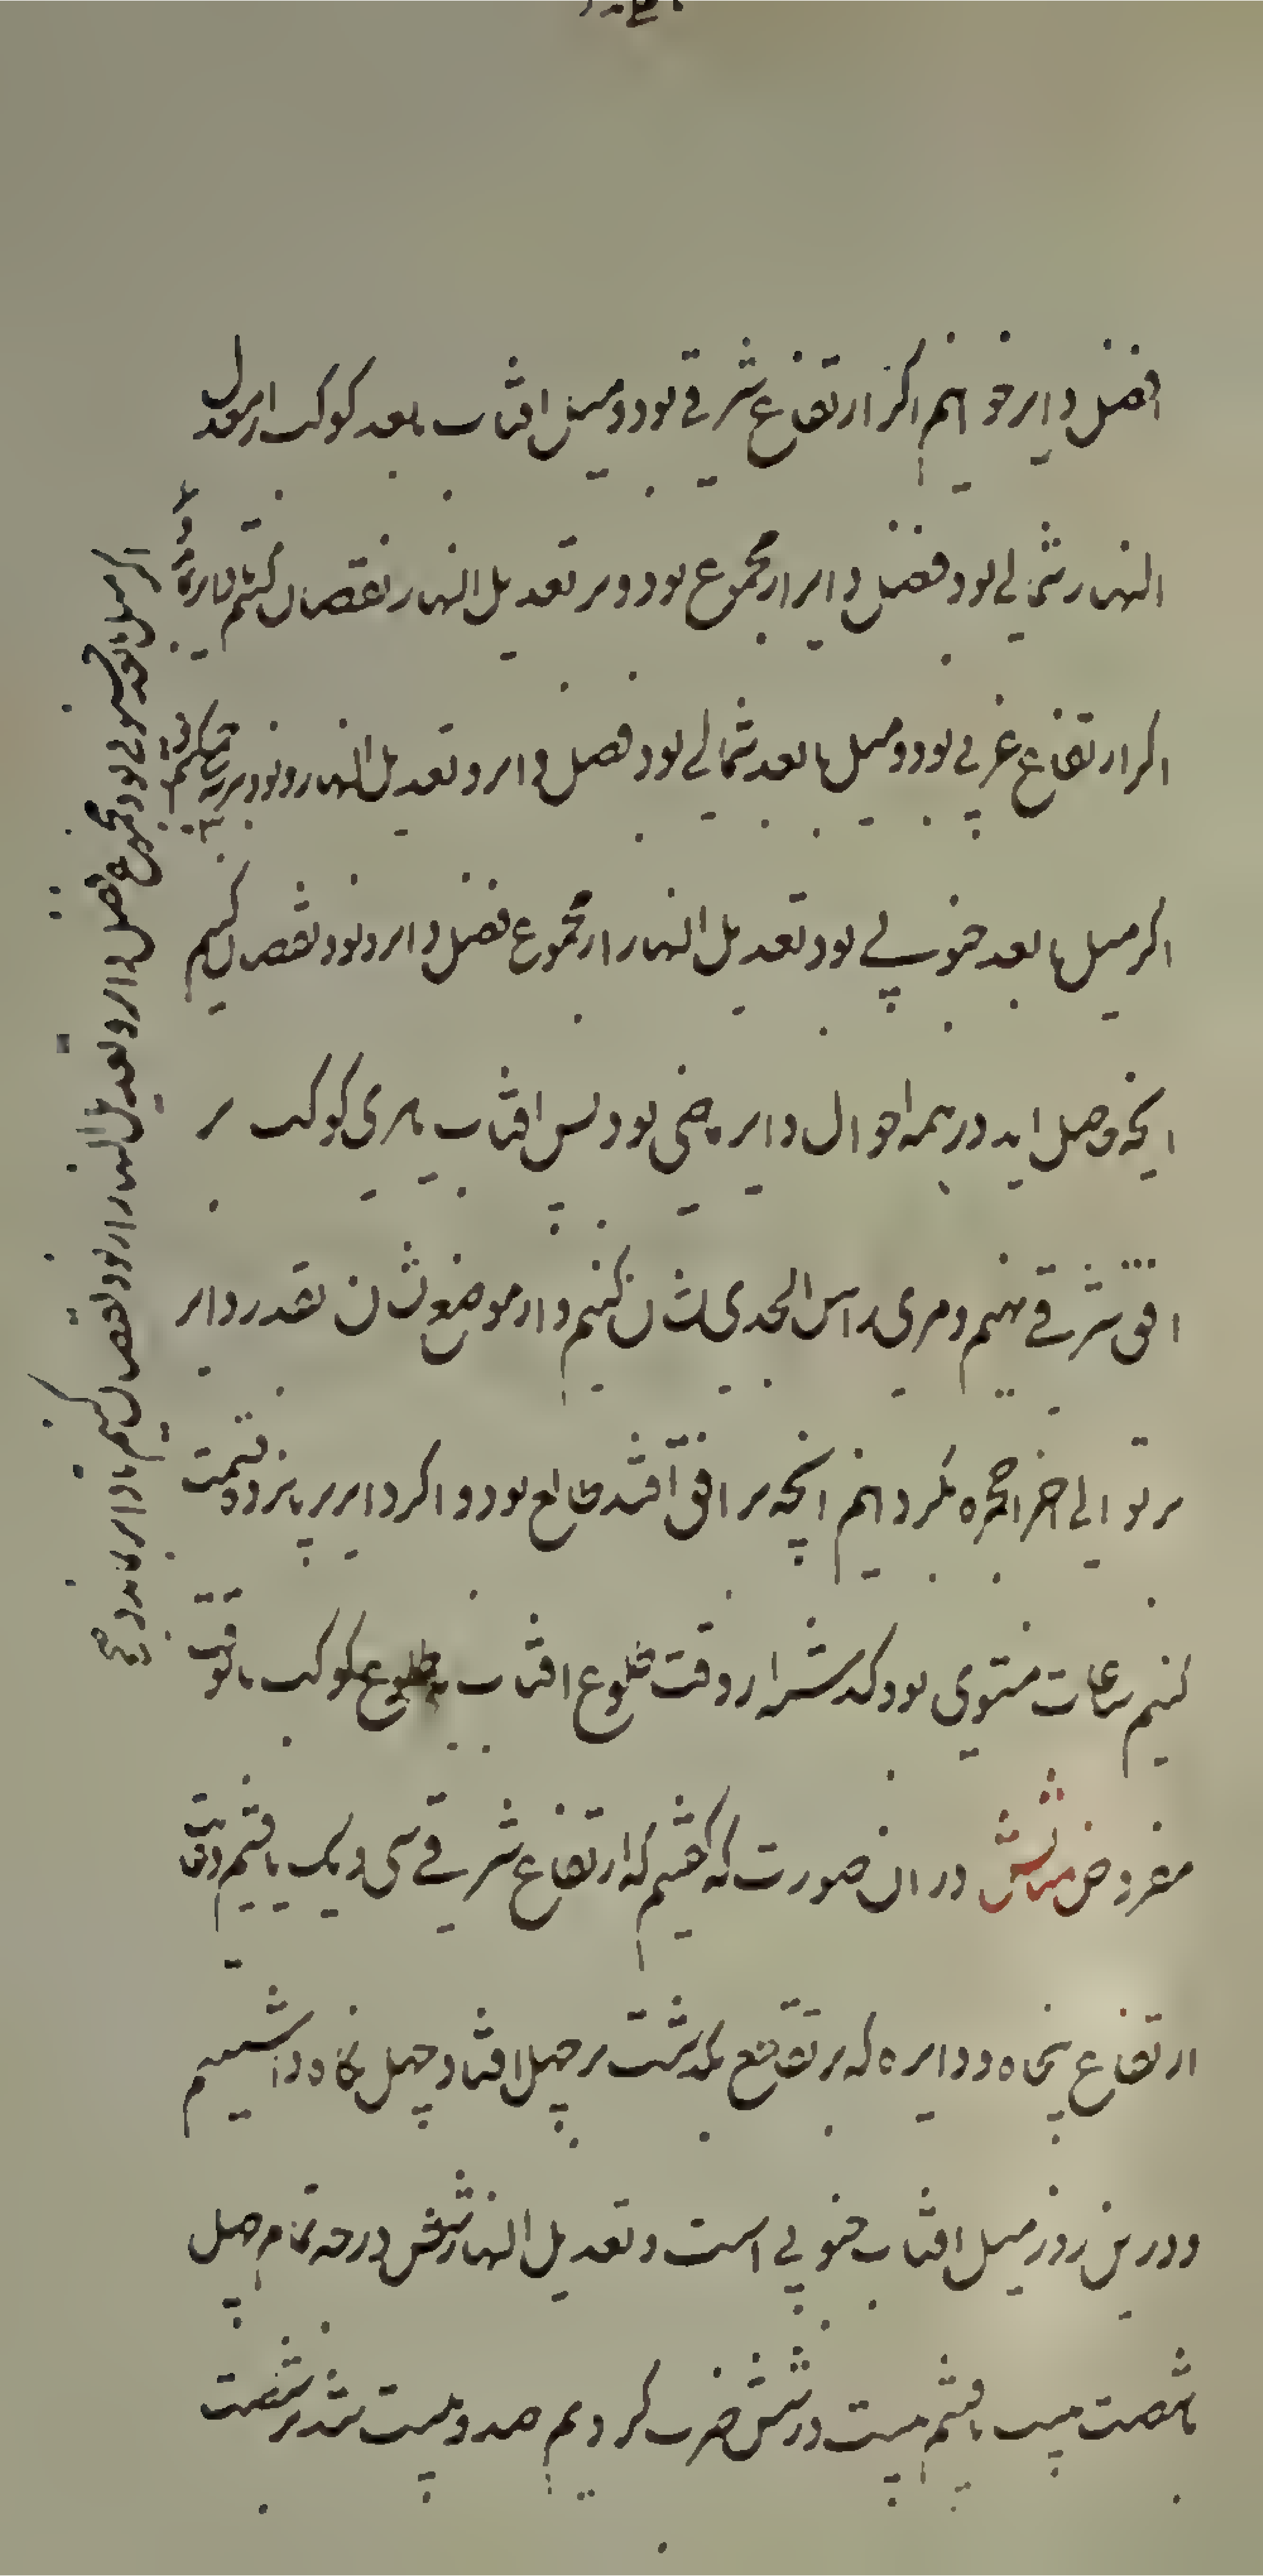 فضل دایر خوانیم اکر ارتفاع شرقی بود و میل افتاب یا بعد کوکب از معدل
النهار شمالی بود فضل دایر از مجموع نود و بر تعدیل النهار نقصان کنیم تا دایر بماند
اکر ارتفاع غربی بود و میل یا بعد شمالی بود فضل دایر و تعدیل النهار و نود بر
اکر میل یا بعد جنوبی بود تعدیل النهار از مجموع فضل دایر و نود نقصان کنیم
انچه حاصل اید در همه احوال دایر ماضی بود پس افتاب یا مری کوکب بر
افق شرقی نهیم و مری راس الجدی نشان کنیم و از موضع نشان بقدر دایر
بر توالی اجزا حجره بگردانیم انچه بر افق افتد طالع بود و اکر دایر بر پانزده قسمت
کنیم ساعات مستوی بود گذشته از وقت طلوع افتاب یا طلوع کوکب تا وقت
مفروض مثالش در ان صورت که گفتیم که ارتفاع شرقی سی و یک یافتیم و غایت
ارتفاع پنجاه و دایره که بر تقاطع بگذشت بر چهل افتاد چهل نگاه داشتیم
و درین روز میل افتاب جنوبی است و تعدیل النهار شش درجه تمام چهل
تا شصت بیست یافتیم بیست در شش ضرب کردیم صد و بیست شد بر شصت
اکر میل یا بعد جنوبی بود مجموع فضل دایر و تعدیل النهار از نود نقصان کنیم تا دایر بماند صح